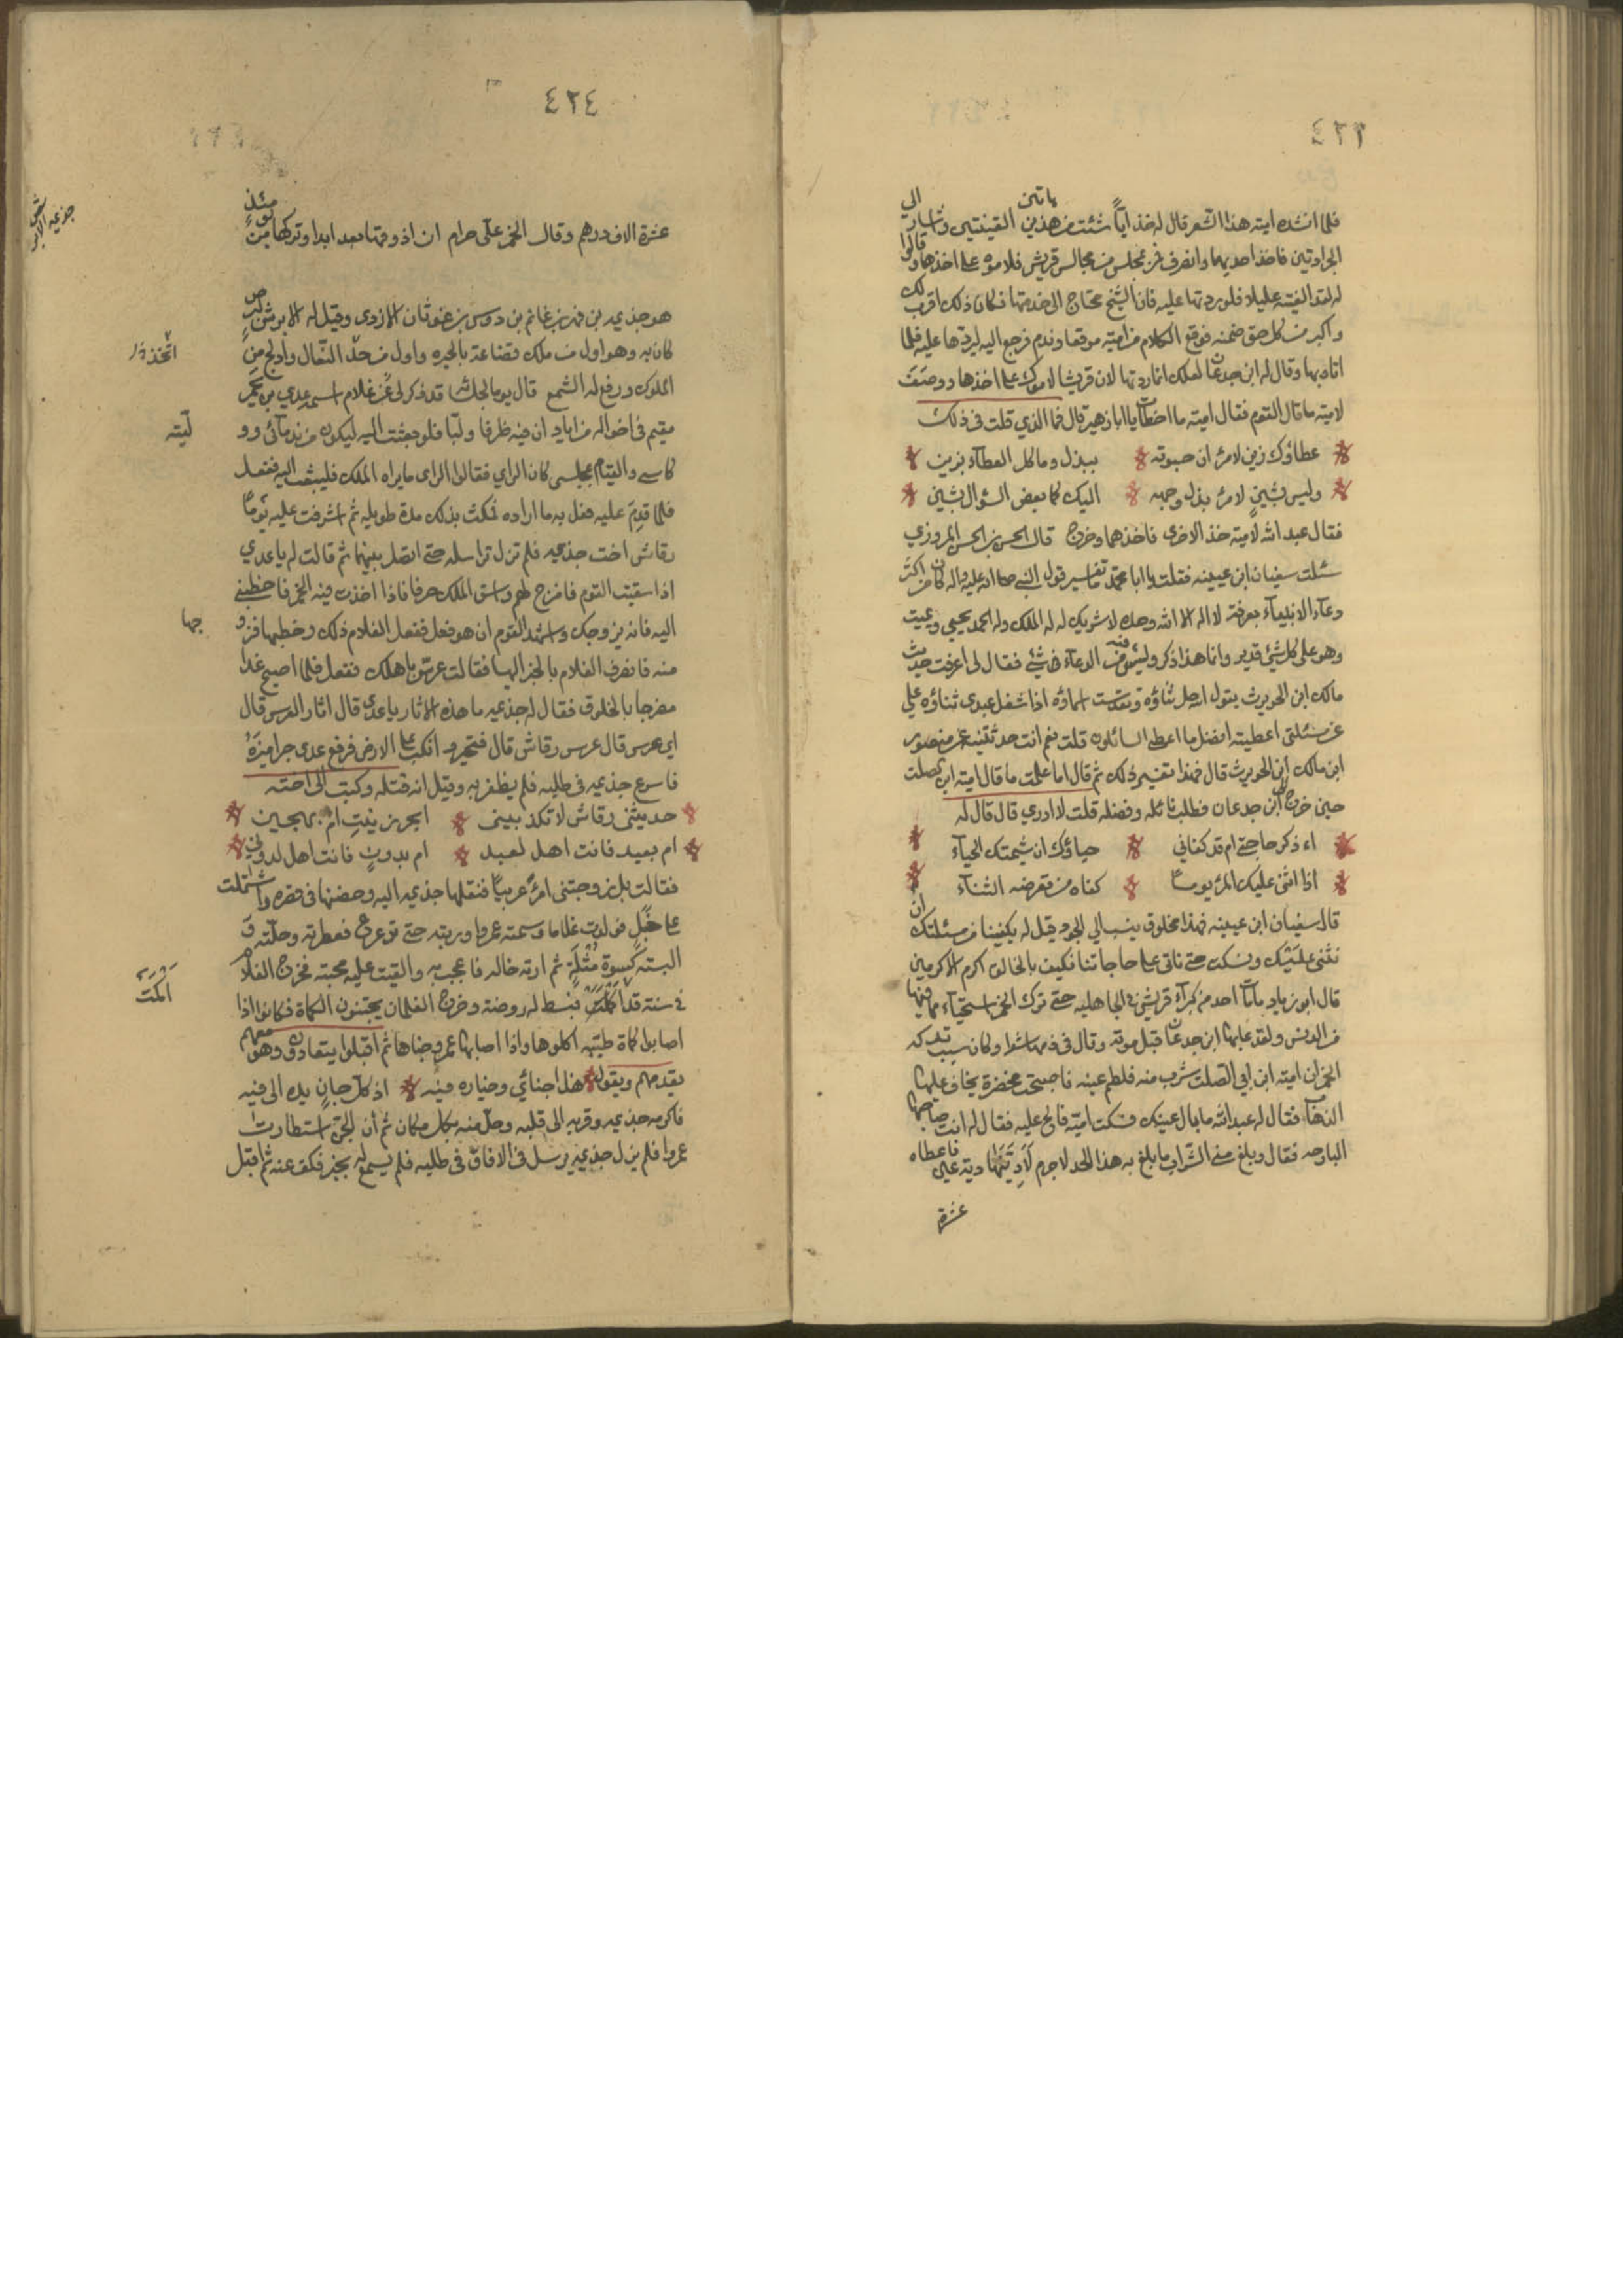 ٤٢٣
فلما انشده امية هذا الشعر قال له خذ ايّاً شئت من هذين القينتين واشار الى
هاتين
الجرادتين فاخذ احديهما وانصرف فمر بمجلس من مجالس قريش فلاموه على اخذها وقالوا
له لقد الفيته عليلا فلو رددتها عليه فان الشيخ محتاج الى خدمتها فكان ذلك اقرب لك
واكبر من كل حق ضمنه فوقع الكلام من امية موقعا وندم فرجع اليه ليردها عليه فلما
اتاه بها وقال له ابن جدعان لعلك انما رددتها لان قريشا لاموك على اخذها ووصف
لامية ما قال القوم فقال امية ما اخطات يا ابا زهير قال فما الذي قلت في ذلك
عطاؤك زين لامرئ ان حبوته ببذل وما كل العطآء يزين
وليس بشين لامرئ بذل وجهه اليك كما بعض السؤال يشين
فقال عبد الله لامية خذ الاخرى فاخذهما وخرج قال الحسن بن الحسن المروزي
سئلت سفيان ابن عيينه فقلت يا ابا محمد ما تفاسير قول النبي صلى الله عليه واله كان من اكثر
دعآء الانبيآء بعرفة لا اله الا الله وحده لا شريك له له الملك وله الحمد يحيي ويميت
وهو على كل شئ قدير وانما هذا ذكر وليس فيه من الدعآء شئ فقال لى اعرفت حديث
مالك ابن الحويرث يقول الله جل ثناؤه وتقدست اسماؤه اذا شغل عبدى ثناؤه علي
عن مسئلتى اعطيته افضل ما اعطى السائلون قلت نعم انت حدثتنيه عن منصور
ابن مالك ابن الحويرث قال فهذا تفسير ذلك ثم قال اما علمت ما قال امية ابن ابي صلت
حين خرج الى ابن جدعان فطلب نائله وفضله قلت لا ادري قال قال له
اء ذكر حاجتى ام قد كفاني حياؤك ان شيمتك الحيآء
اذا اثنى عليك المرئ يومًا كفاه من تعرضه الثنآء
قال سفيان ابن عيينه فهذا مخلوق ينسب الى الجود قيل له يكفينا من مسئلتك ان
نثنى عليك ونسكت حتى تاتى على حاجاتنا فكيف بالخالق اكرم الاكرمين
قال ابو زياد ما مات احد من كبرآء قريش في الجاهليه حتى ترك الخمر استحيآء مما فيها
من الدنس ولقد عابها ابن جدعان قبل موته وقال فى ذمها شعرا وكان سبب تركه
الخمر ان امية ابن ابي الصلت شرب معه فلطم عينه فاصبحت مخضرة يخاف عليها
الذهاب فقال له عبد الله ما بال عينك فسكت امية فالح عليه فقال له انت صاحبها
البارحه فقال وبلغ منى الشراب ما بلغ به هذا الحد لا جرم لادينها دية عين فاعطاه
عشرة
٤٢٤
عشرة الاف درهم وقال الخمر على حرام ان اذوقها بعد ابدا وتركها من يومئذٍ
جذيمة الابرش
هو جذيمه بن فهد بن غانم بن دوس بن عدثان الازدى وقيل له الابرش لبرص
كان به وهو اول من ملك قضاعة بالحيره واول من حذّ النعال وادلج من
اتخذ
الملوك ورفع له الشمع قال يوما لجلسائه قد ذكر لى عن غلام اسمه عدي من لخم
مقيم فى اخواله من اياد ان فيه ظرفا ولبّا فلو بعثت اليه ليكون من ندمائى وو
ليته
كاسى والقيام بمجلسى كان الراي فقالوا الراى ما يراه الملك فليبعث اليه ففعل
فلما قدم عليه فعل به ما اراده فمكث بذلك مدة طويله ثم اشرفت عليه يومًا
رقاش اخت جذيمه فلم تزل تراسله حتى اتصل بينهما ثم قالت له يا عدي
اذا سقيت القوم فامزج لهم واسق الملك صرفا فاذا اخذت فيه الخمر فاخطبنى
اليه فانه يزوجك واشهد القوم ان هو فعل ففعل الغلام ذلك وخطبها فزو
جها
منه فانصرف الغلام بالخبر اليها فقالت عرّس باهلك ففعل فلما اصبح غدا
مضرجا بالخلوق فقال له جذيمه ما هذه الاثار يا عدي قال اثار العرس قال
اي عرس قال عرس رقاش قال فنخر وانكب على الارض فرفع عدى جراميزه
فاسرع جذيمه فى طلبه فلم يظفر به وقيل انه قتله وكتب الى اخته
حديثنى رقاش لا تكذبينى ابحر زنيت ام بهجين
ام بعبد فانت اهل لعبد ام بدون فانت اهل لدون
فقالت بل زوجتنى امرءً عربيًا فنقلها جذيمه اليه وحصنها فى قصره واشتملت
على حبل فولدت غلاما وسمته عمروا وربته حتى ترعرع فعطرته وحلّته و
البسته كسوة مثله ثم ارته خاله فاعجب به والقيت عليه محبته فخرج الغلام
فى سنة قد اكمئت فبسط له روضة وخرج الغلمان يجتنون الكماة فكانوا اذا
اكمئت
اصابوا كماة طيبه اكلوها واذا اصابها عمرو خباها ثم اقبلوا يتعادون وهو معهم
يقدمهم ويقول هذا جنائي وخياره فيه اذ كل جانٍ يده الى فيه
فاكرمه جذيمه وقربه الى قلبه وحل منه بكل مكان ثم ان الجن استطارت
عمروا فلم يزل جذيمه يرسل فى الافاق فى طلبه فلم يسمع له بخبر فكف عنه ثم اقبل